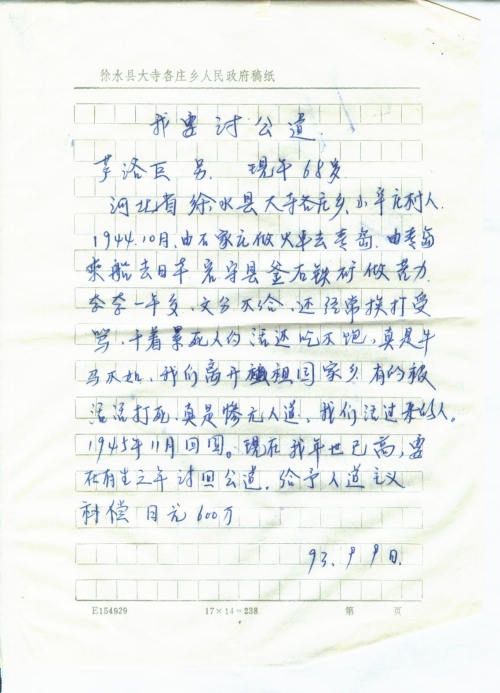 徐水县大寺各庄乡人民政府稿纸
我要讨公道.
李洛巨 男. 现年68岁
河北省徐水县大寺各庄乡.小辛庄村人.
1944.10月.由石家庄做火车去青岛.由青岛
乘船去日本岩守县釜石铁矿做苦力.
李李一年多,文分不给,还经常挨打受
骂,干着累死人的活还吃不饱,真是牛
马不如,我们离开祖国家乡有的被
活活打死.真是惨无人道,我们活过来的人。
1945年11月回国。现在我年也已高,要
在有生之年讨回公道.给予人道主义
补偿 日元600万
93. 9 9日.
E154929 17×14=238 第 页